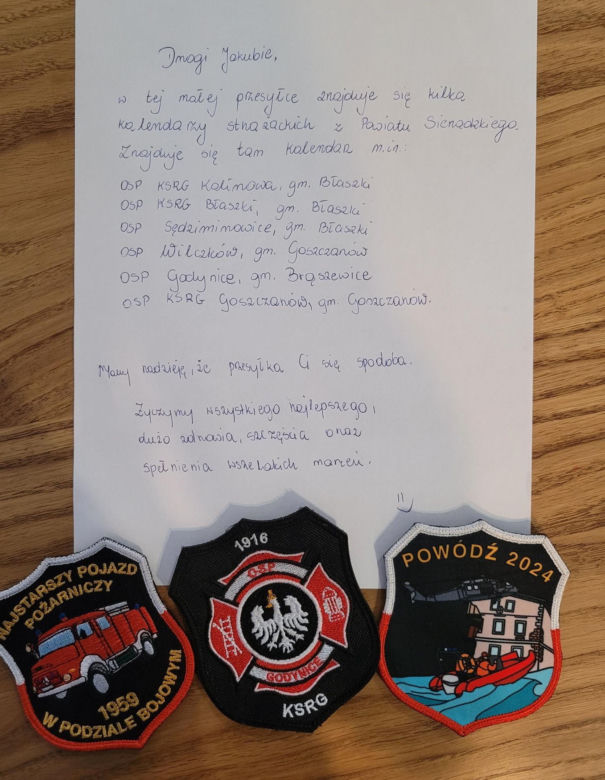 Drogi Jakubie,
w tej małej przesyłce znajduje się kilka
kalendarzy strażackich z Powiatu Sieradzkiego.
Znajduje się tam kalendarz m.in.:
OSP KSRG Kalinowa, gm. Błaszki
OSP KSRG Błaszki, gm. Błaszki
OSP Sędzimirowice, gm. Błaszki
OSP Wilczków, gm. Goszczanów
OSP Godynice, gm. Brąszewice
OSP KSRG Goszczanów, gm. Goszczanów.
Mamy nadzieję, że przesyłka Ci się spodoba.
Życzymy wszystkiego najlepszego,
dużo zdrowia, szczęścia oraz
spełnienia wszelakich marzeń.
NAJSTARSZY POJAZD
POŻARNICZY
1959
W PODZIALE BOJOWYM
1916
OSP
GODYNICE
KSRG
POWÓDŹ 2024